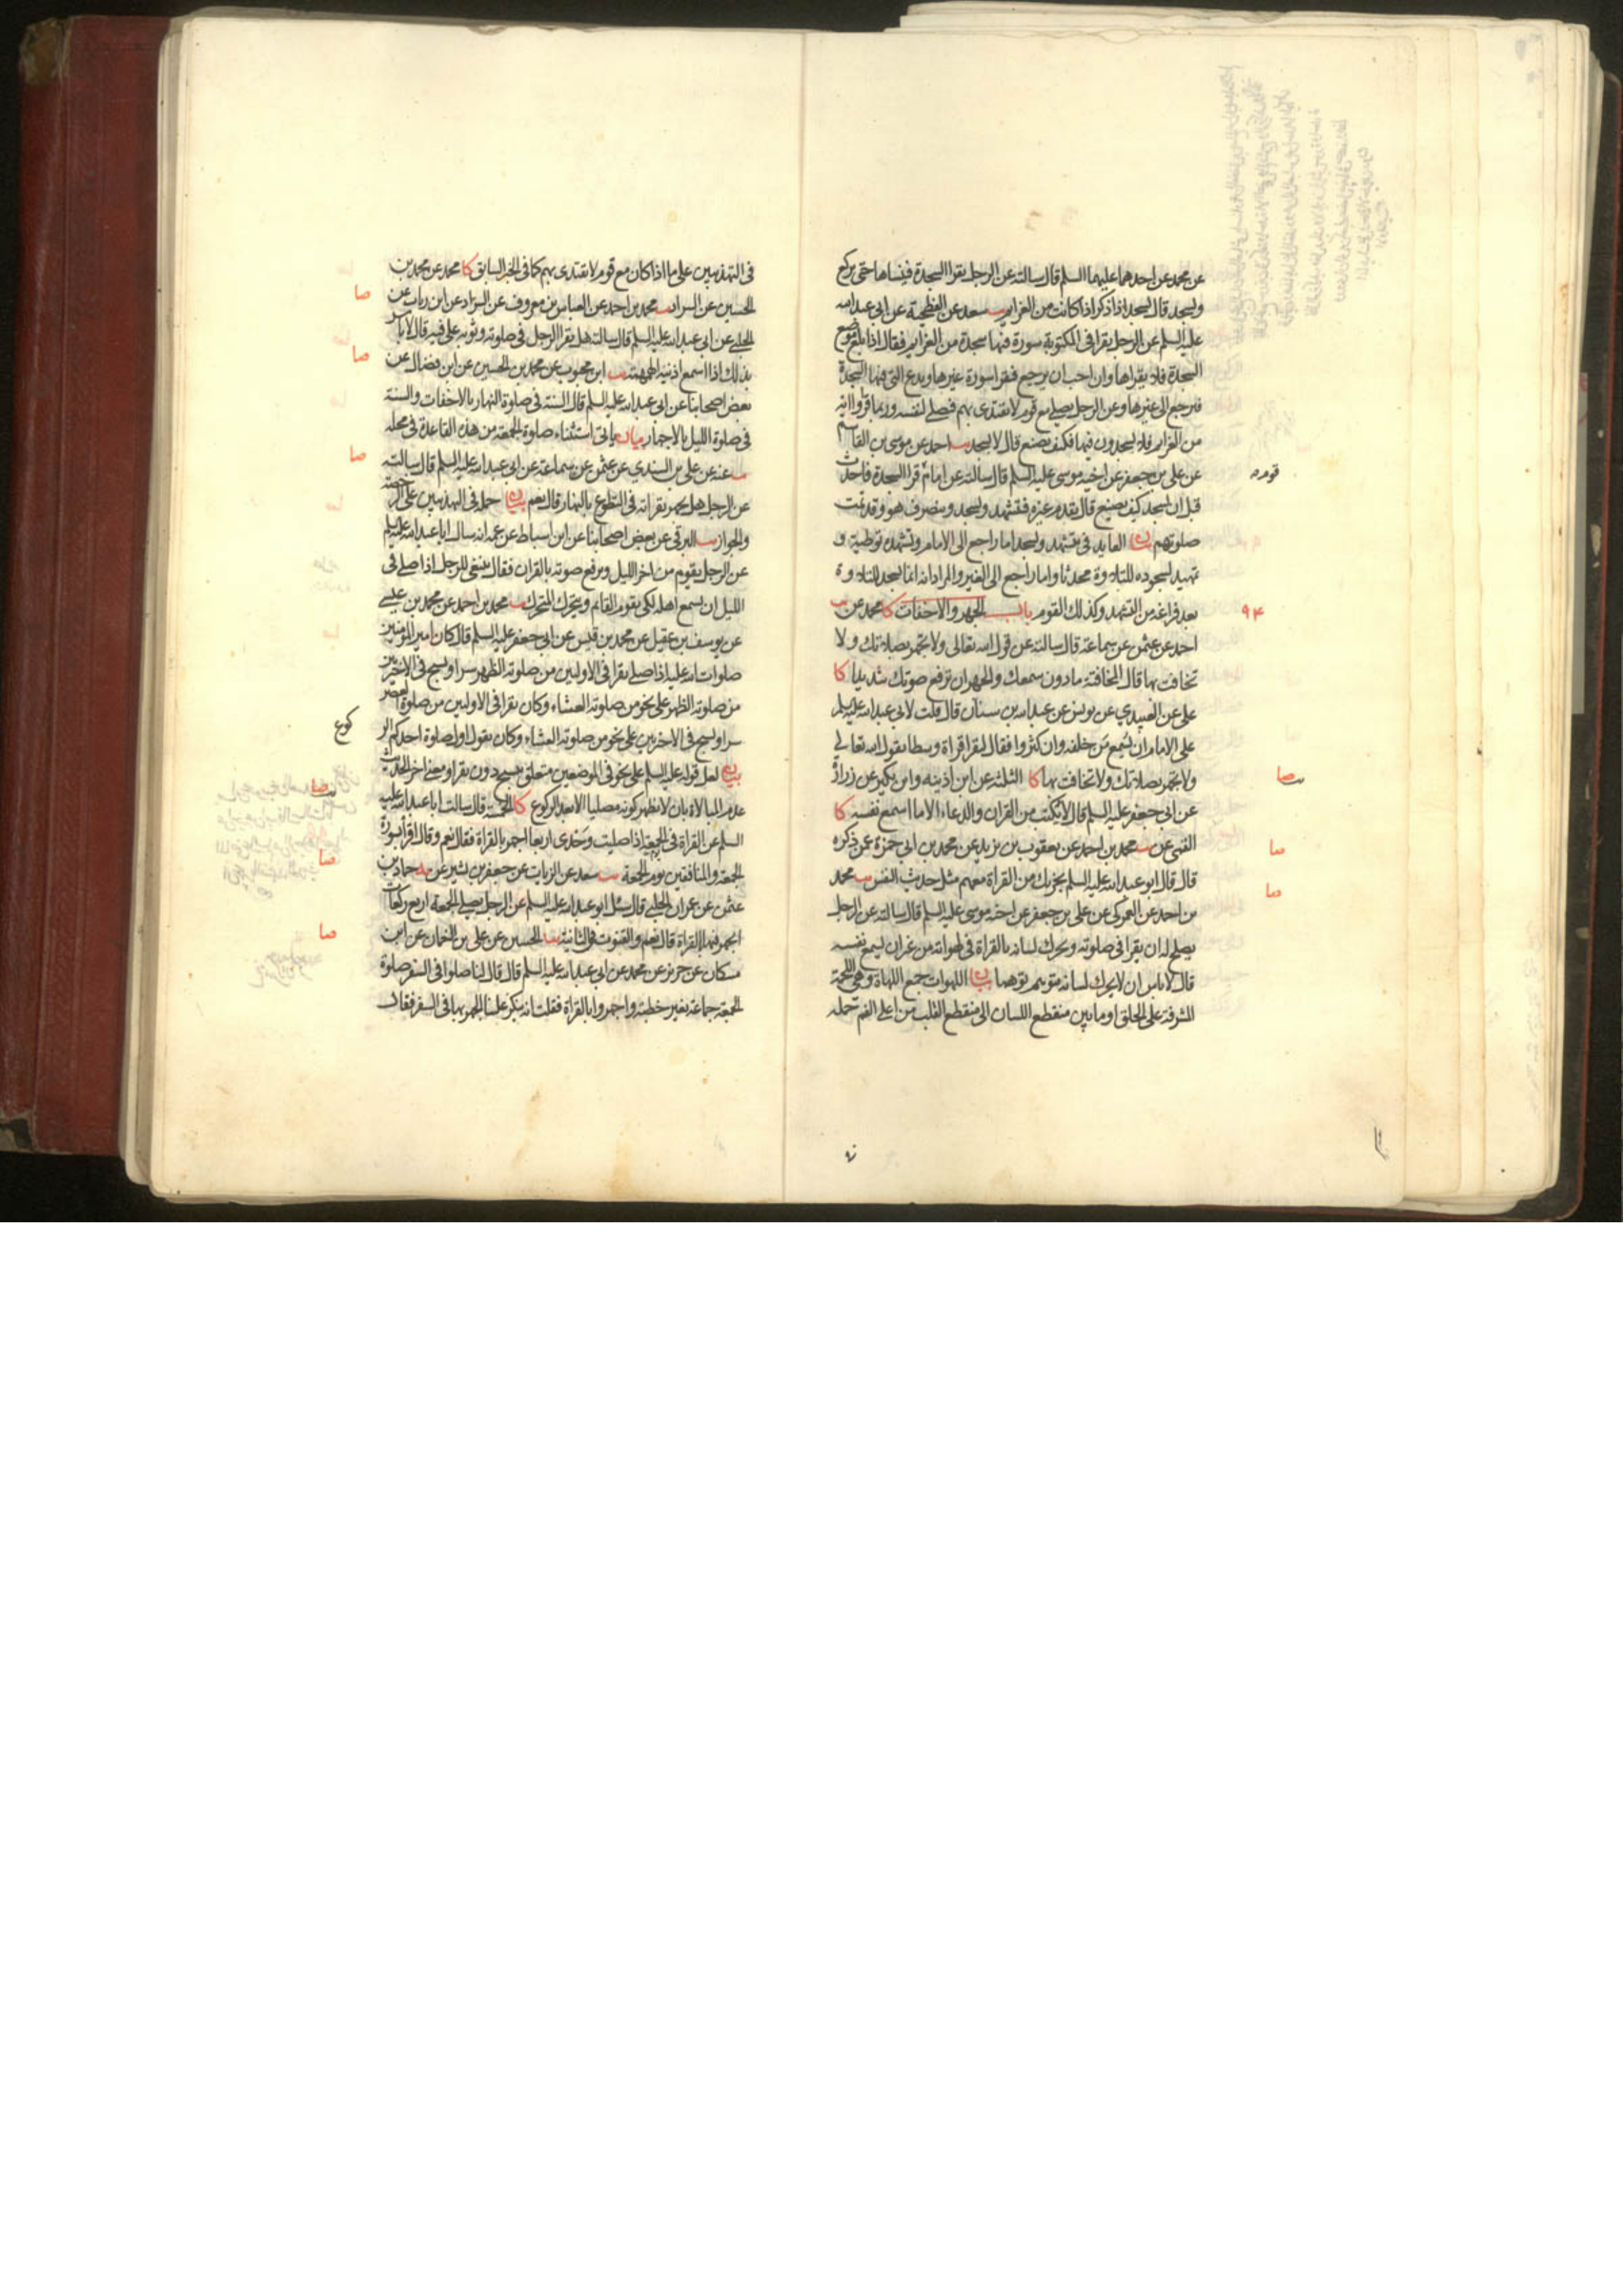 عن محمد عن احدهما عليهما السلم قال سالته عن الرجل يقرا السجدة فينساها حتى يركع
ويسجد قال يسجد اذا ذكر اذا كانت من العزايم يب سعد عن الفطحية عن ابي عبد الله
عليه السلم عن الرجل يقرا في المكتوبة سورة فيها سجدة من العزايم فقال اذا بلغ موضع
السجدة فلا يقراها وان احب ان يرجع فيقرا سورة غيرها ويدع التي فيها السجدة
فيرجع الى غيرها وعن الرجل يصلي مع قوم لا يقتدى بهم فيصلي لنفسه وربما قرؤا اية
من العزايم فلا يسجدون فيها فكيف يصنع قال لا يسجد يب احمد عن موسى بن القاسم
عن علي بن جعفر عن اخيه موسى عليه السلم قال سالته عن امام قرا السجدة فاحدث
قبل ان يسجد كيف يصنع قال يقدم غيره فيتشهد ويسجد وينصرف هو وقد تمت
صلوتهم بيان العايد في يتشهد ويسجد اما راجع الى الامام وتشهده توطية و
تمهيد لسجوده للتلاوة محدثا واما راجع الى الغير والمراد انه انما يسجد للتلاوة
بعد فراغه من التشهد وكذلك القوم باب الجهر والاخفات كا محمد عن يب
احمد عن عثمن عن سماعة قال سالته عن قول الله تعالى ولا تجهر بصلاتك ولا
تخافت بها قال المخافتة ما دون سمعك والجهر ان ترفع صوتك شديدا كا
علي عن العبيدي عن يونس عن عبد الله بن سنان قال قلت لابي عبد الله عليه السلم
على الامام ان يسمع من خلفه وان كثروا فقال ليقرا قراة وسطا يقول الله تعالى
ولا تجهر بصلاتك ولا تخافت بها كا الثلثة عن ابن اذينه وابن بكير عن زرارة
عن ابي جعفر عليه السلم قال لا يكتب من القران والدعاء الا ما اسمع نفسه كا
القمي عن يب محمد بن احمد عن يعقوب بن يزيد عن محمد بن ابي حمزة عمن ذكره
قال قال ابو عبد الله عليه السلم يجزيك من القراة معهم مثل حديث النفس يب محمد
بن احمد عن العمركى عن علي بن جعفر عن اخيه موسى عليه السلم قال سالته عن الرجل
يصلح له ان يقرا في صلوته ويحرك لسانه بالقراة في لهواته من غير ان يسمع نفسه
قال لا باس ان لا يحرك لسانه يتوهم توهما بيان اللهوات جمع اللهاة وهي اللحمة
المشرفة على الحلق او ما بين منقطع اللسان الى منقطع القلب من اعلى الفم حمله
قومه
۹۴
صا
صا
صا
في التهذيبين على ما اذا كان مع قوم لا يقتدى بهم كما في الخبر السابق كا محمد عن محمد بن
الحسين عن السراد يب محمد بن احمد عن العباس بن معروف عن السراد عن ابن رباب عن
الحلبي عن ابي عبد الله عليه السلم قال سالته هل يقرا الرجل في صلوته وثوبه على فيه قال لا باس
بذلك اذا اسمع اذنيه الهمهمة يب ابن محبوب عن محمد بن الحسين عن ابن فضال عن
بعض اصحابنا عن ابي عبد الله عليه السلم قال السنة في صلوة النهار بالاخفات والسنة
في صلوة الليل بالاجهار بيان ياتي استثناء صلوة الجمعة من هذه القاعدة في محله
يب عنه عن علي بن السندي عن عثمن عن سماعة عن ابي عبد الله عليه السلم قال سالته
عن الرجل هل يجهر بقراته في التطوع بالنهار قال نعم بيان حمله في التهذيبين على الرخصة
والجواز يب البرقي عن بعض اصحابنا عن ابن اسباط عن عمه انه سال ابا عبد الله عليه السلم
عن الرجل يقوم من اخر الليل ويرفع صوته بالقران فقال ينبغي للرجل اذا صلى في
الليل ان يسمع اهله لكي يقوم القائم ويتحرك المتحرك يب محمد بن احمد عن محمد بن عيسى
عن يوسف بن عقيل عن محمد بن قيس عن ابي جعفر عليه السلم قال كان امير المومنين
صلوات الله عليه اذا صلى يقرا في الاوليين من صلوته الظهر سرا ويسبح في الاخريين
من صلوته الظهر على نحو من صلوته العشاء وكان يقرا في الاوليين من صلوة العصر
سرا ويسبح في الاخريين على نحو من صلوته العشاء وكان يقول اول صلوة احدكم الر
كوع
بيان لعل قوله عليه السلم على نحو في الموضعين متعلق بيسبح دون يقرا ومعنى اخر الحديث
عدم المبالاة بان لا يظهر كونه مصليا الا بعد الركوع كا الخمسة قال سالت ابا عبد الله عليه
السلم عن القراة في الجمعة اذا صليت وحدي اربعا اجهر بالقراة فقال نعم وقال اقرا بسورة
الجمعة والمنافقين يوم الجمعة يب سعد عن الزيات عن جعفر بن بشير عن حماد بن
عثمن عن عمران الحلبي قال سئل ابو عبد الله عليه السلم عن الرجل يصلي الجمعة اربع ركعات
ايجهر فيها بالقراة قال نعم والقنوت في الثانية يب الحسين عن علي بن النعمان عن ابن
مسكان عن حريز عن محمد عن ابي عبد الله عليه السلم قال قال لنا صلوا في السفر صلوة
الجمعة جماعة بغير خطبة واجهروا بالقراة فقلت انه ينكر علينا الجهر بها في السفر فقال
صا
صا
صا
صا
صا
صا